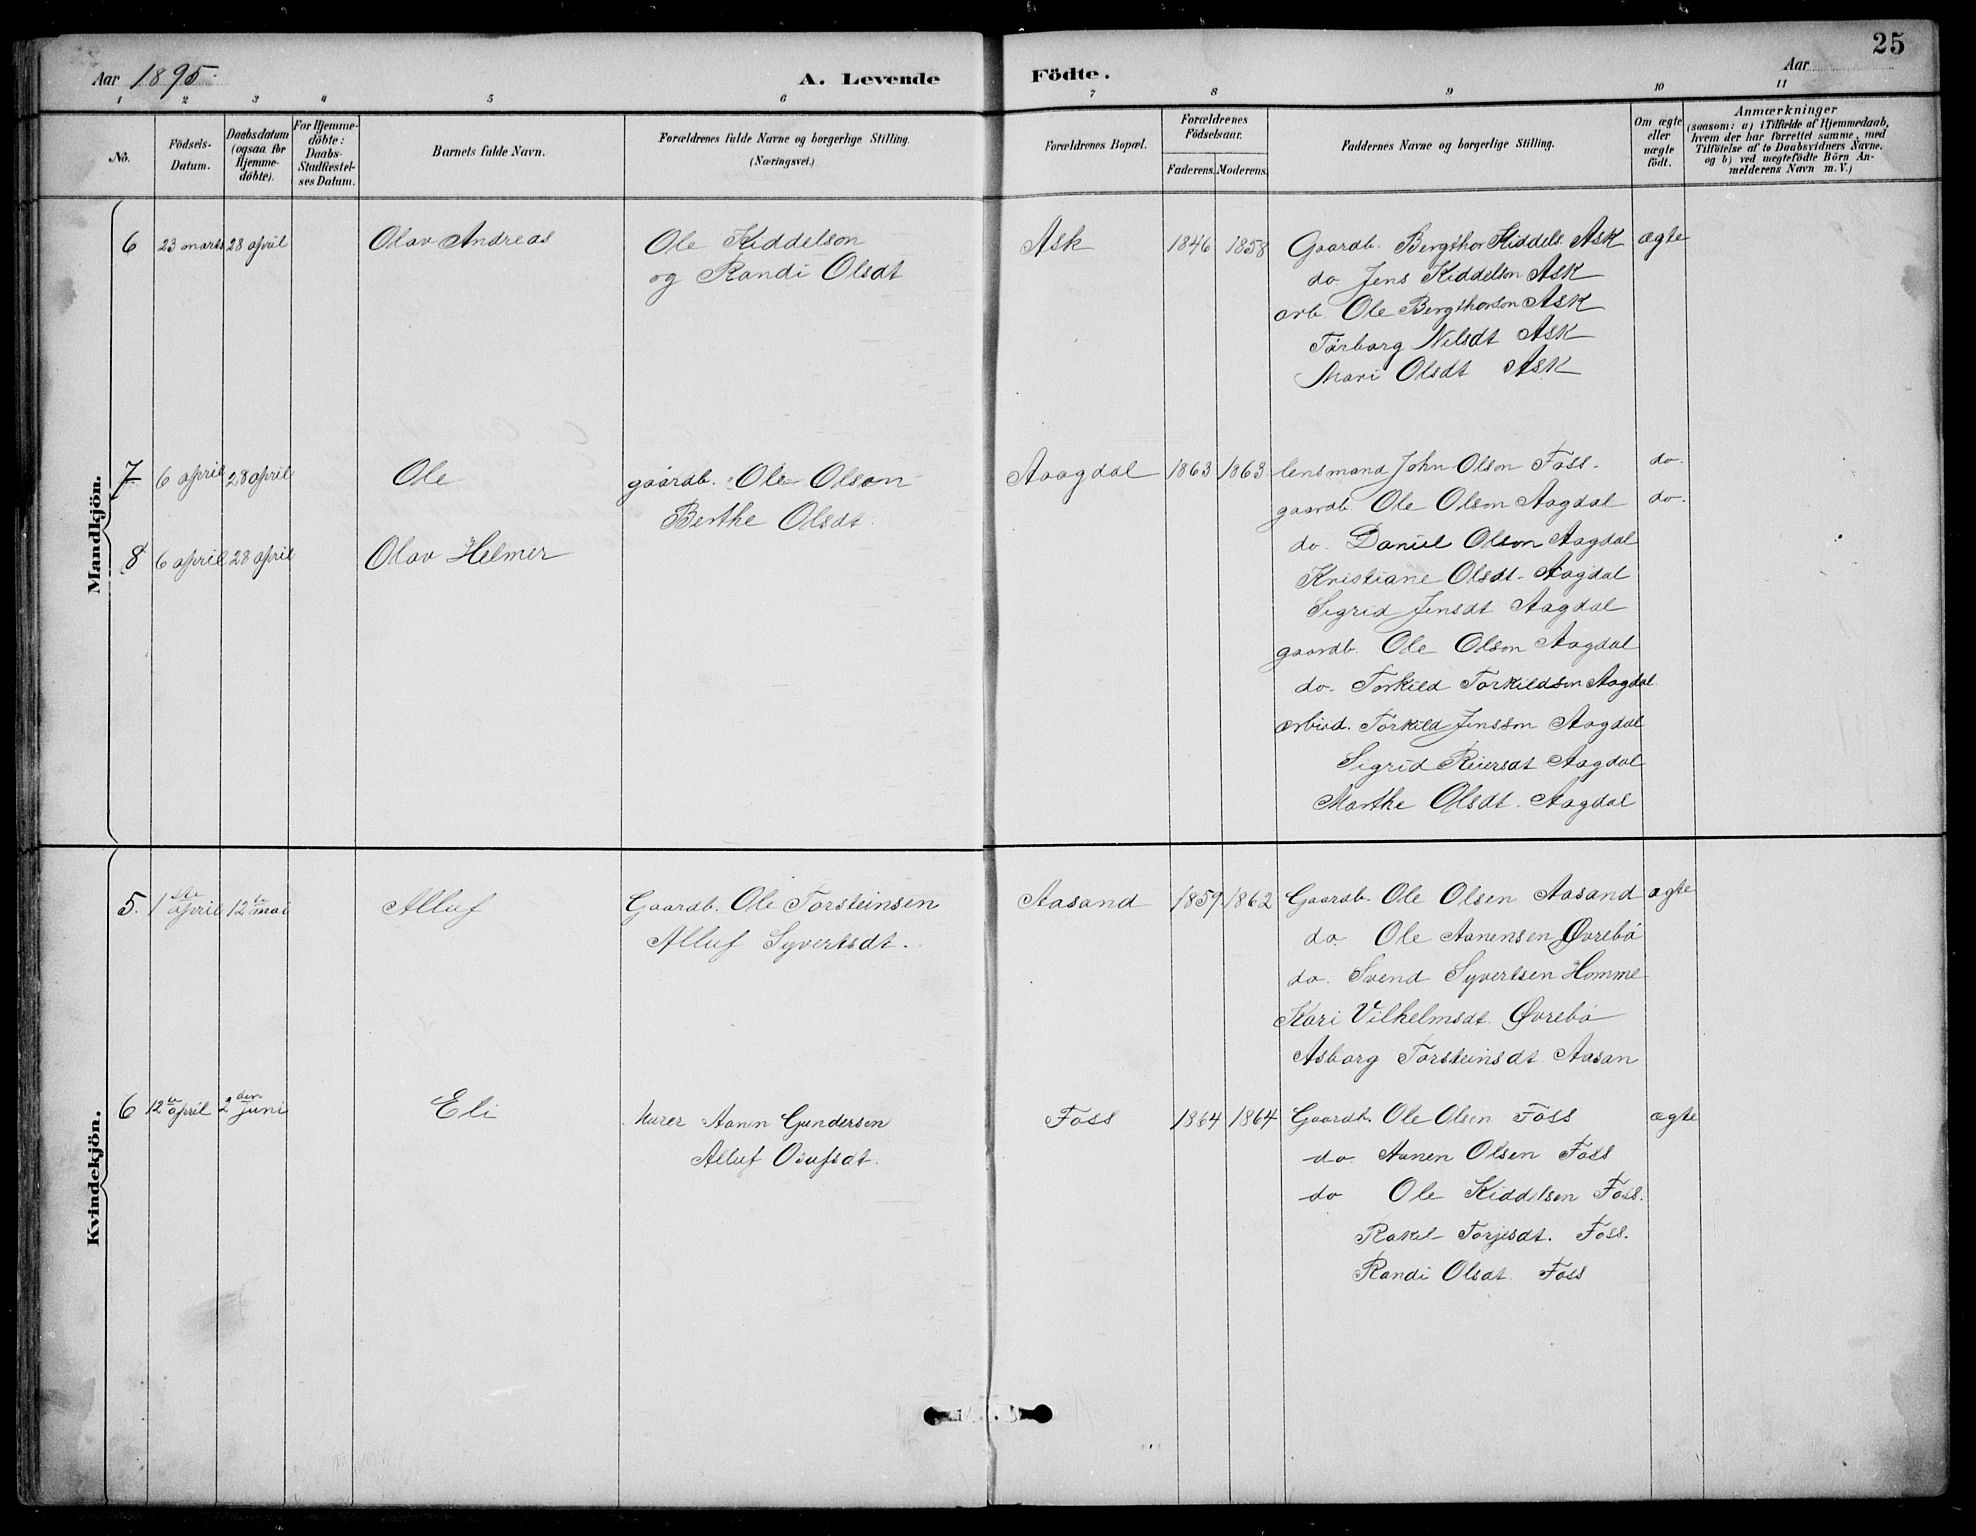 25
Aar 1895.
A. Levende Födte.
Aar
1 2 3 4 5 6 7 8 9 10 11
No.
Födsels-Datum.
Daabsdatum (ogsaa for Hjemme-döbte).
For Hjemme-döbte: Daabs-Stadfæstel-ses Datum.
Barnets fulde Navn.
Forældrenes fulde Navne og borgerlige Stilling. (Næringsvei.)
Forældrenes Bopæl.
Forældrenes Födselsaar.
Faderens. Moderens.
Faddernes Navne og borgerlige Stilling.
Om ægte eller uægte födt.
Anmærkninger
(saasom: a) i Tilfælde af Hjemmedaab,
hvem der har forrettet samme, med
Tilföielse af to Daabsvidners Navne,
og b) ved uægtefödte Börn An-
melderens Navn m. V.)
Mandkjön.
6 23 marts 28 april Olav Andreas Ole Kiddelson Ask 1846 1858 Gaardb. Bergthor Kiddels. Ask ægte
og Randi Olsdt do Jens Kiddelson Ask
arb. Ole Bergthorson Ask
Torborg Nilsdt Ask
Mari Olsdt Ask
7 6 april 28 april Ole gaardb. Ole Olson Aagdal 1863 1863 lensmand John Olson Foss. do.
Berthe Olsdt. gaardb. Ole Olson Aagdal do.
8 6 april 28 april Olav Helmer do. Daniel Olson Aagdal
Kristiane Olsdt. Aagdal
Sigrid Jensdt Aagdal
gaardb. Ole Olson Aagdal
do. Torkild Torkildson Aagdal
arbeid. Torkild Jensson Aagdal
Sigrid Reiersdt Aagdal
Marthe Olsdt. Aagdal
Kvindekjön.
5. 1ste april 12te mai Alluf Gaardb. Ole Torsteinsen Aasand 1859 1862 Gaardb. Ole Olsen Aasand ægte
Alluf Syvertsdt. do. Ole Aanensen Øvrebø
do. Svend Syvertsen Homme
Kari Vilhelmsdt. Øvrebø
Asborg Torsteinsdt Aasan
6 12te april 2den juni Eli Murer Aanen Gundersen Foss 1864 1864 Gaardb. Ole Olsen Foss ægte
Alluf Osufsdt. do. Aanen Olsen Foss
do Ole Kiddelsen Foss.
Rakel Torjesdt. Foss.
Randi Olsdt. Foss